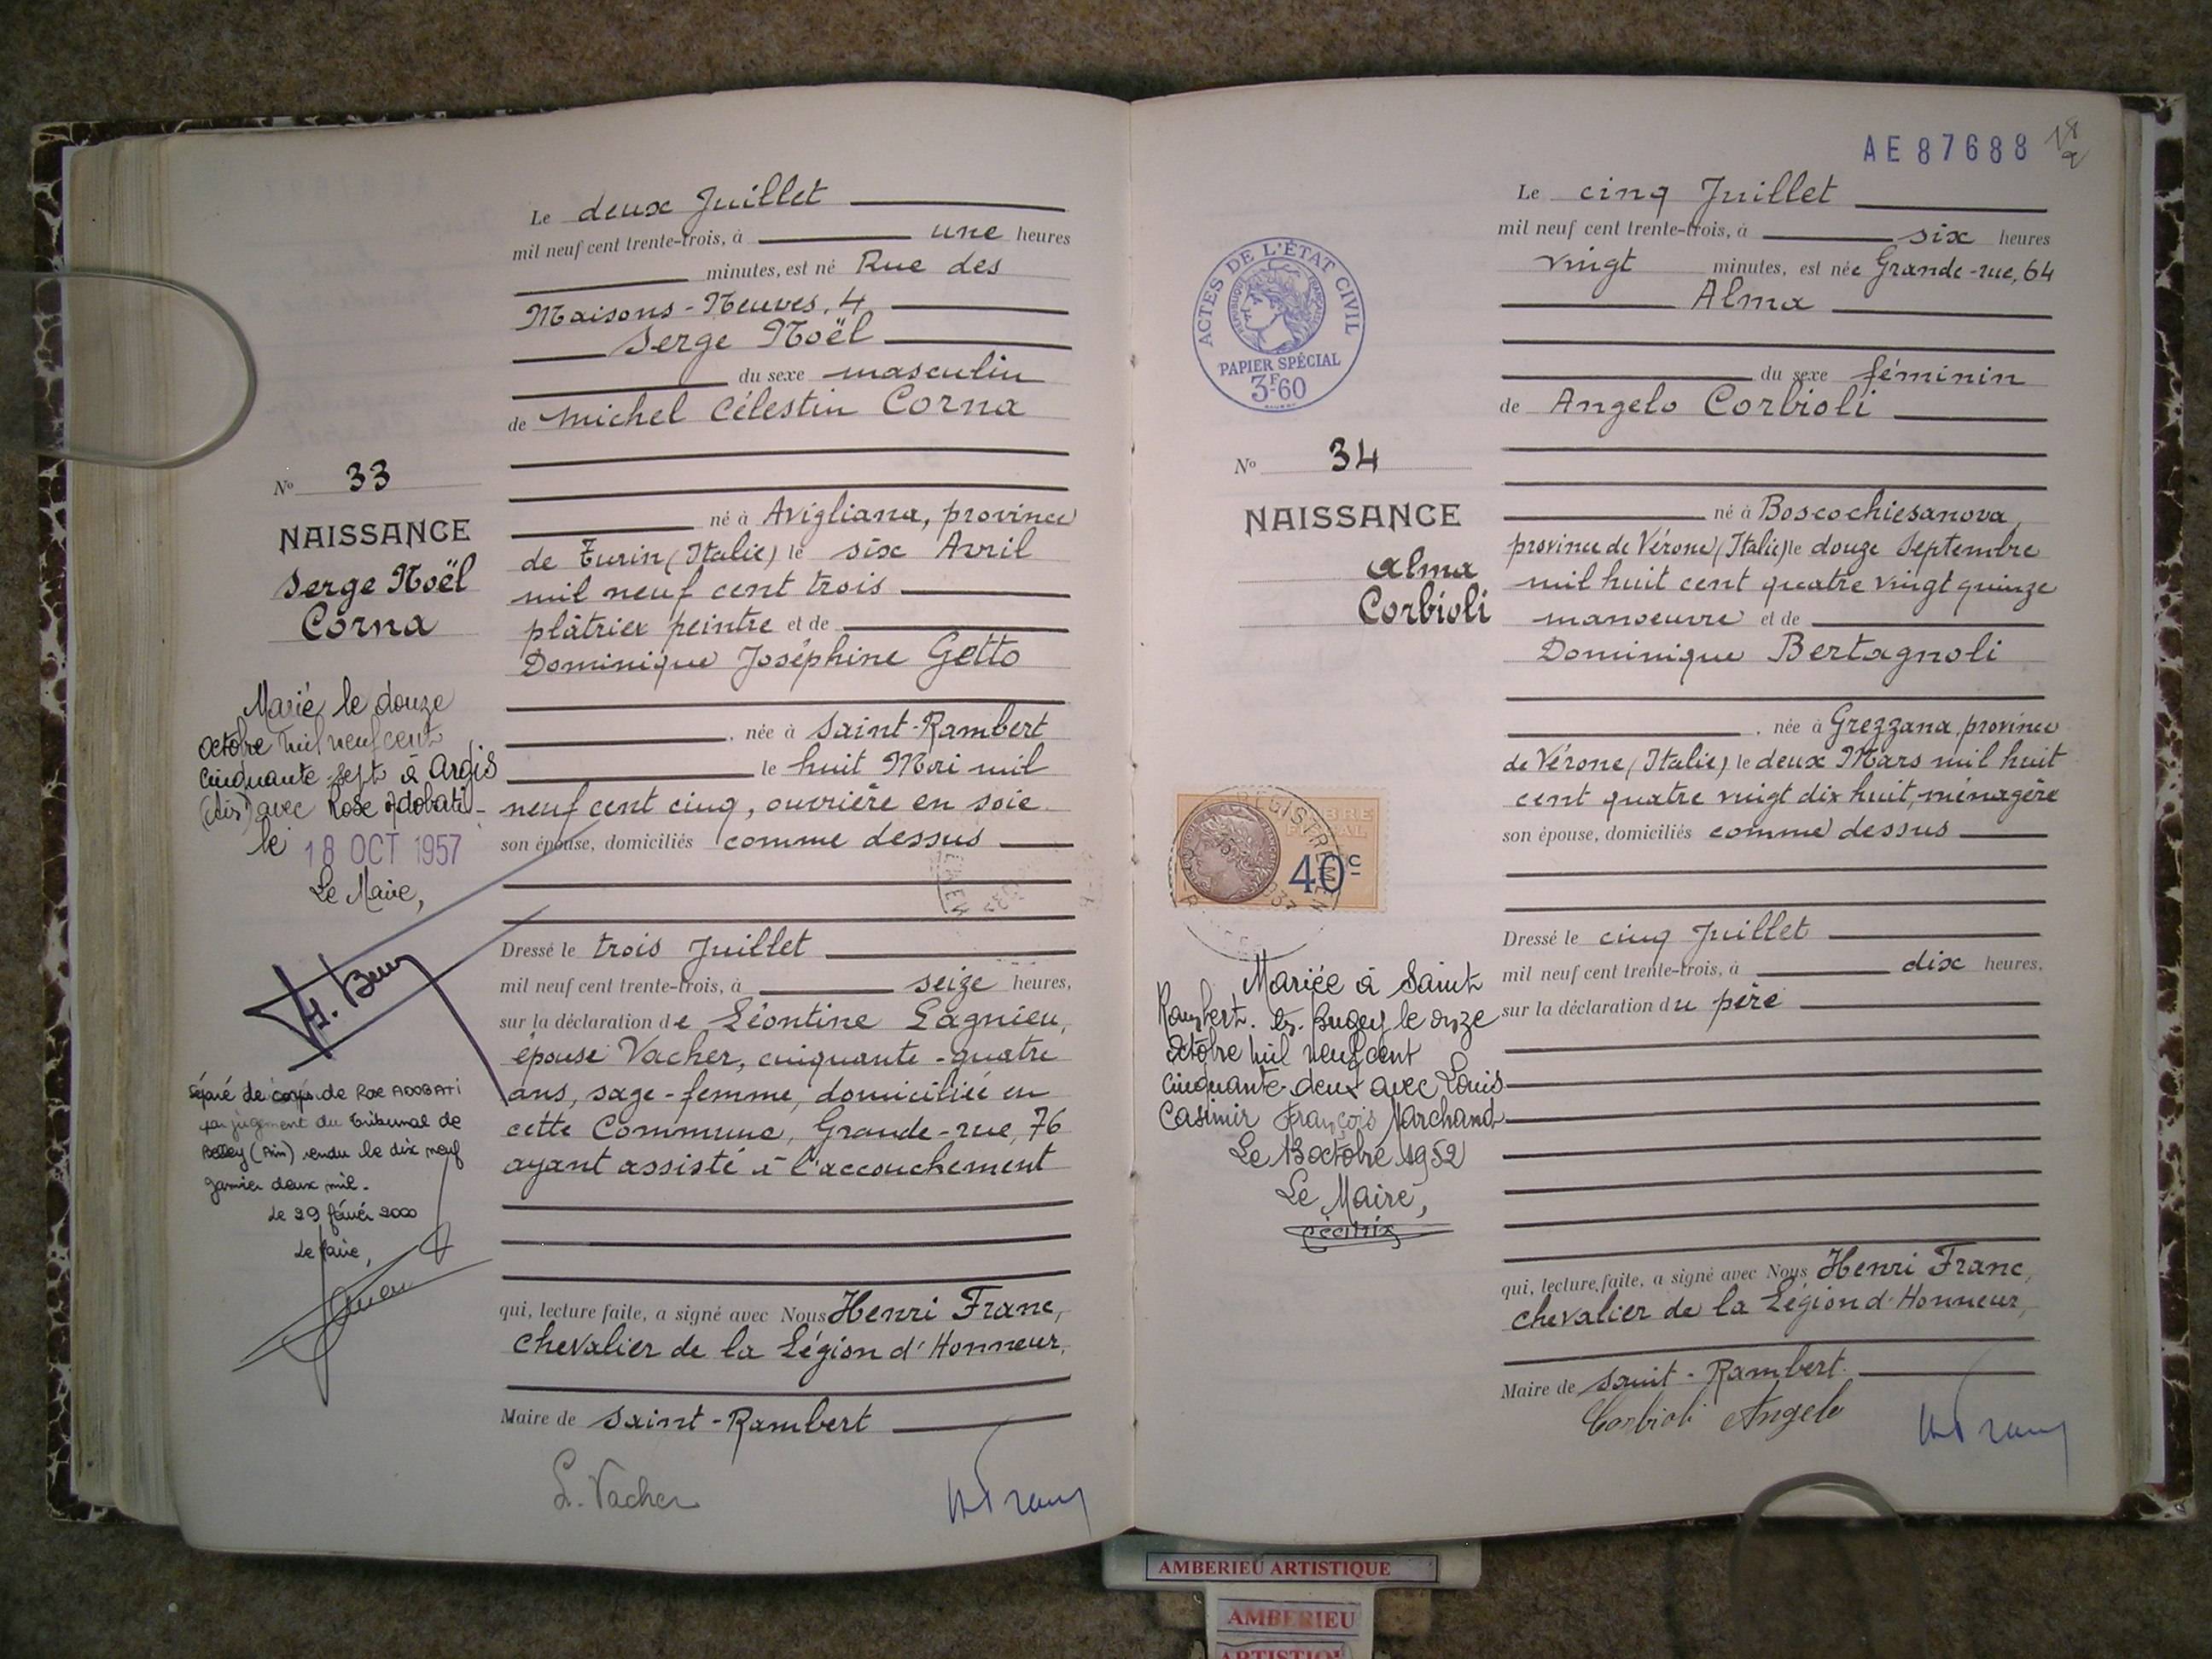 Le deux Juillet
mil neuf cent trente-trois, à une heures
minutes, est né Rue des
Maisons-Neuves, 4
Serge Noël
du sexe masculin
de Michel Célestin Corna
né à Avigliana, province
de Turin (Italie) le six Avril
mil neuf cent trois
plâtrier peintre et de
Dominique Joséphine Getto
, née à Saint-Rambert
le huit Mai mil
neuf cent cinq, ouvrière en soie
son épouse, domiciliés comme dessus
Dressé le trois Juillet
mil neuf cent trente-trois, à seize heures,
sur la déclaration de Léontine Lagnieu,
épouse Vacher, cinquante-quatre
ans, sage-femme, domiciliée en
cette Commune, Grande-rue, 76
ayant assisté à l'accouchement
qui, lecture faite, a signé avec Nous Henri Franc,
Chevalier de la Légion d'Honneur,
Maire de Saint-Rambert
L. Vacher
No 33
NAISSANCE
Serge Noël
Corna
Marié le douze
octobre mil neuf cent
cinquante-sept à Argis
(Ain) avec Rose Adobati-
le 18 OCT 1957
Le Maire,
Séparé de corps de Rose ADOBATI
par jugement du Tribunal de
Belley (Ain) rendu le dix neuf
janvier deux mil.
Le 29 février 2000
Le Maire,
AE87688
Le cinq Juillet
mil neuf cent trente-trois, à six heures
vingt minutes, est née Grande-rue, 64
Alma
du sexe féminin
de Angelo Corbioli
né à Boscochiesanova,
province de Vérone (Italie) le douze Septembre
mil huit cent quatre vingt quinze
manoeuvre et de
Dominique Bertagnoli
, née à Grezzana, province
de Vérone (Italie) le deux Mars mil huit
cent quatre vingt dix huit, ménagère
son épouse, domiciliés comme dessus
Dressé le cinq Juillet
mil neuf cent trente-trois, à dix heures,
sur la déclaration du père
qui, lecture faite, a signé avec Nous Henri Franc,
Chevalier de la Légion d'Honneur,
Maire de Saint-Rambert
Corbioli Angelo
ACTES DE L'ÉTAT CIVIL
RÉPUBLIQUE FRANÇAISE
PAPIER SPÉCIAL
3F60
No 34
NAISSANCE
Alma
Corbioli
TIMBRE
FISCAL
40c
Mariée à Saint
Rambert-en-Bugey le onze
octobre mil neuf cent
cinquante-deux avec Louis
Casimir François Marchand
Le 13 octobre 1952
Le Maire,
AMBERIEU ARTISTIQUE
AMBERIEU
ARTISTIQUE